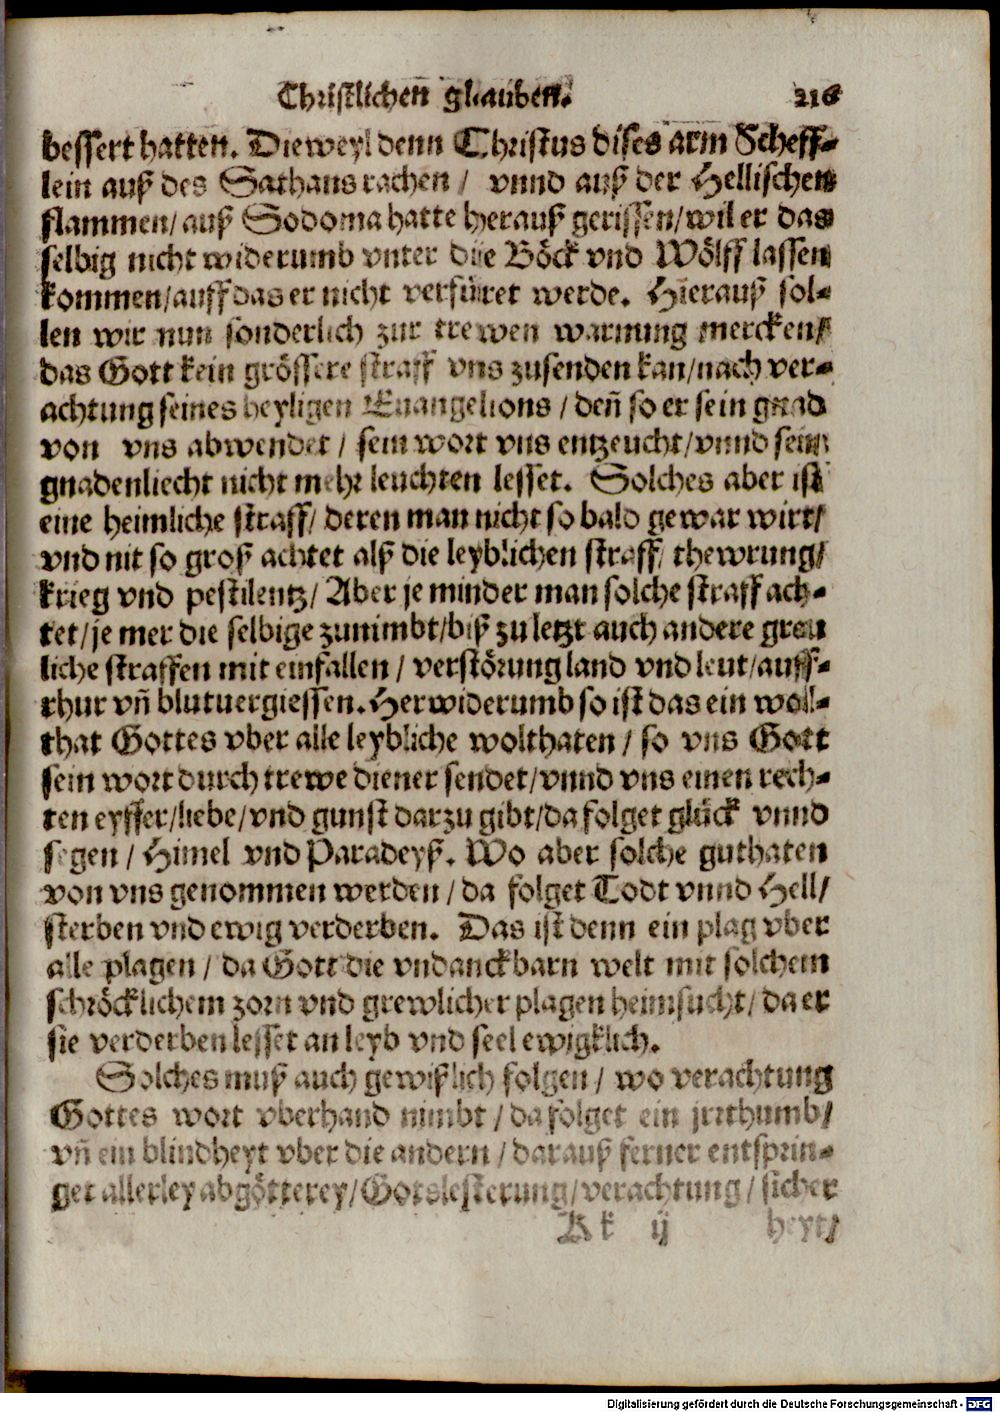 Christlichen glauben. 216
bessert hatten. Dieweyl denn Christus dises arm Scheff-
lein auß des Sathans rachen / vnnd auß der Hellischen
flammen/auß Sodoma hatte herauß gerissen/wil er das
selbig nicht widerumb vnter die Böck vnd Wölff lassen
kommen/auff das er nicht verfüret werde. Hierauß sol-
len wir nun sonderlich zur trewen warnung mercken/
das Gott kein grössere straff vns zusenden kan/nach ver-
achtung seines heyligen Euangelions / deñ so er sein gnad
von vns abwendet / sein wort vns entzeucht/vnnd sein
gnadenliecht nicht mehr leuchten lesset. Solches aber ist
eine heimliche straff/ deren man nicht so bald gewar wirt/
vnd nit so groß achtet alß die leyblichen straff/ thewrung/
krieg vnd pestilentz/ Aber je minder man solche straff ach-
tet/je mer die selbige zunimbt/biß zu letzt auch andere greu
liche straffen mit einfallen / verstörung land vnd leut/auff-
rhur vñ blutuergiessen. Herwiderumb so ist das ein woll-
that Gottes vber alle leybliche wolthaten / so vns Gott
sein wort durch trewe diener sendet/vnnd vns einen rech-
ten eyffer/liebe/vnd gunst darzu gibt/da folget glück vnnd
segen / Himel vnd Paradeyß. Wo aber solche guthaten
von vns genommen werden / da folget Todt vnnd Hell/
sterben vnd ewig verderben. Das ist denn ein plag vber
alle plagen / da Gott die vndanckbarn welt mit solchem
schröcklichem zorn vnd grewlicher plagen heimsucht/ da er
sie verderben lesset an leyb vnd seel ewigklich.
Solches muß auch gewißlich folgen / wo verachtung
Gottes wort vberhand nimbt / da folget ein jrrthumb/
vñ ein blindheyt vber die andern / darauß ferner entsprin-
get allerley abgötterey/Gotslesterung/verachtung/sicher
Kk ij heyt/
Digitalisierung gefördert durch die Deutsche Forschungsgemeinschaft - DFG